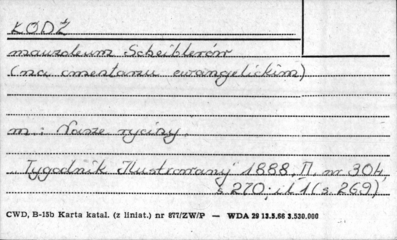 ŁÓDŹ
mauzoleum Scheiblerów
(na cmentarzu ewangelickim)
m: Nasze ryciny.
Tygodnik Ilustrowany 1888, II, nr 304
s 270; il 1 (s 269)
CWD, B-15b Karta katal. (z liniat.) nr 877/ZW/P — WDA 29 13.5.66 3.530.000